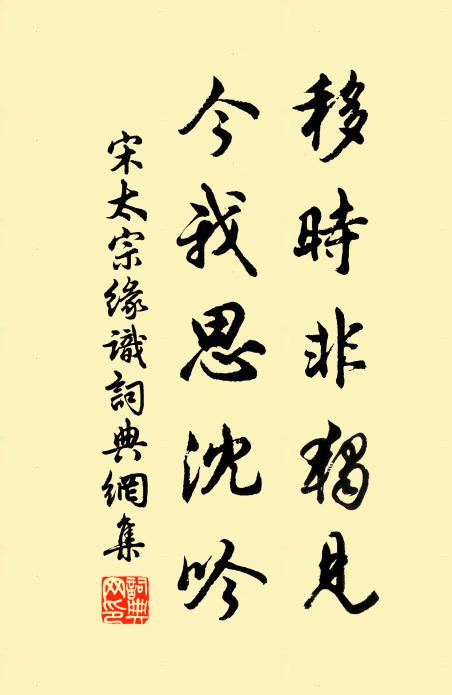 移時非獨見
今我思沈吟
宋太宗緣識詞典網集
詞典網印